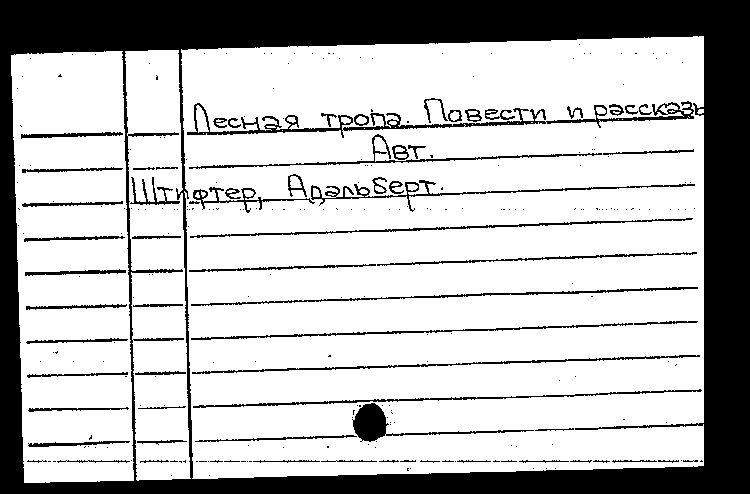 Лесная тропа. Повести и рассказы
Авт.
Штифтер, Адальберт.